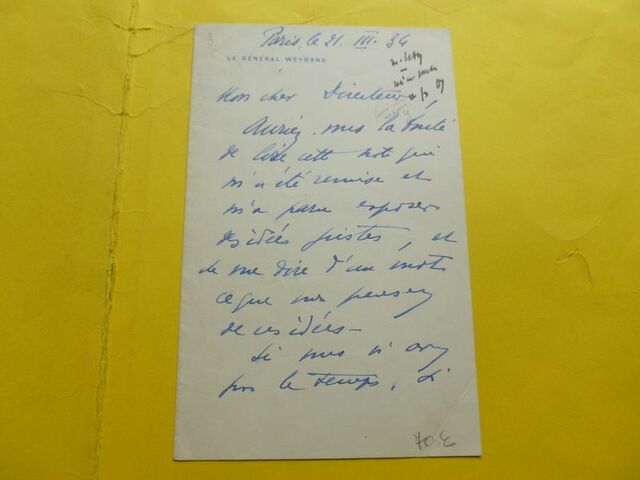 3
Paris, le 21. III. 34
LE GÉNÉRAL WEYGAND
Mon cher Directeur,
Auriez-vous la bonté
de lire cette note qui
m'a été remise et
m'a paru exposer
des idées justes, et
de me dire d'un mot
ce que vous pensez
de ces idées –
Si vous n'avez
pas le temps, si
70 €